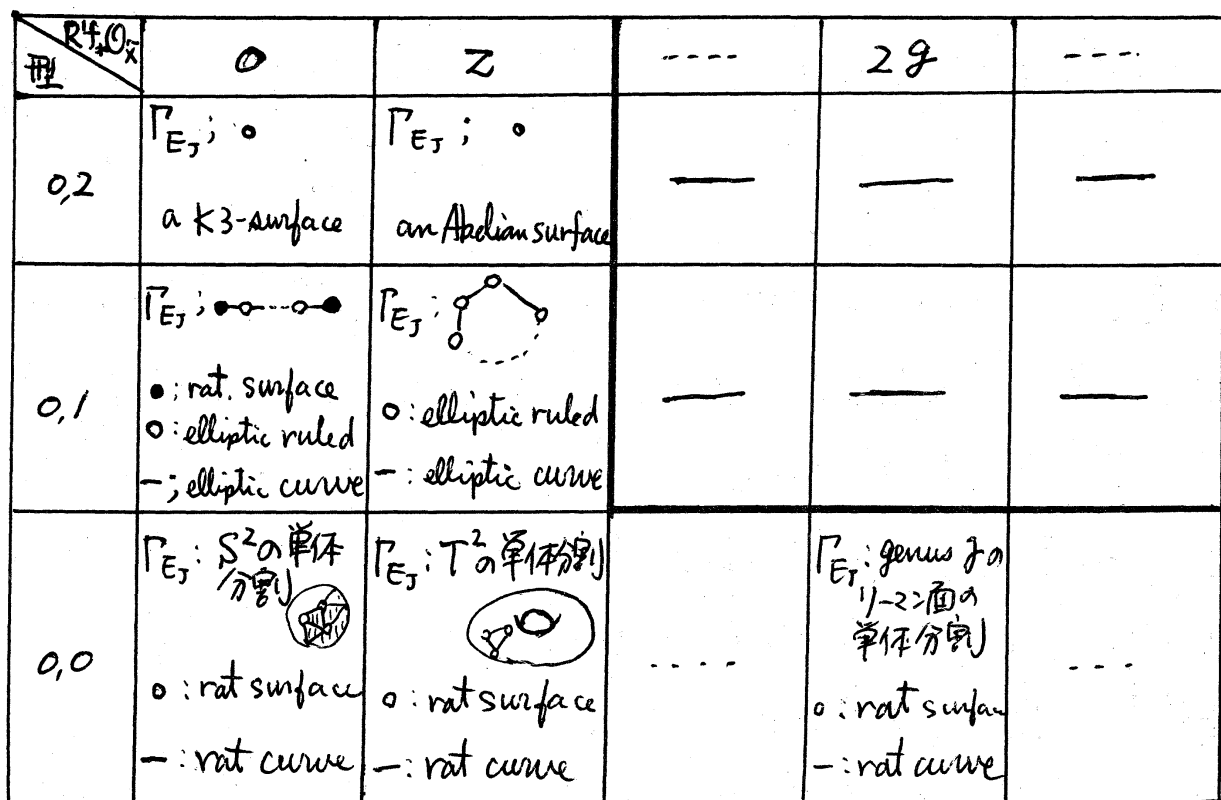 R¹f*O_X̃
型
0
2
----
2g
----
0,2
Γ_{E_J};
a K3-surface
Γ_{E_J};
an Abelian surface
—
—
—
0,1
Γ_{E_J};
●; rat. surface
○: elliptic ruled
—; elliptic curve
Γ_{E_J}:
○: elliptic ruled
—: elliptic curve
—
—
—
0,0
Γ_{E_J}: S²の単体
分割
○: rat surface
—: rat curve
Γ_{E_J}: T²の単体分割
○: rat surface
—: rat curve
----
Γ_{E_J}: genus gの
リーマン面の
単体分割
○: rat surface
—: rat curve
---